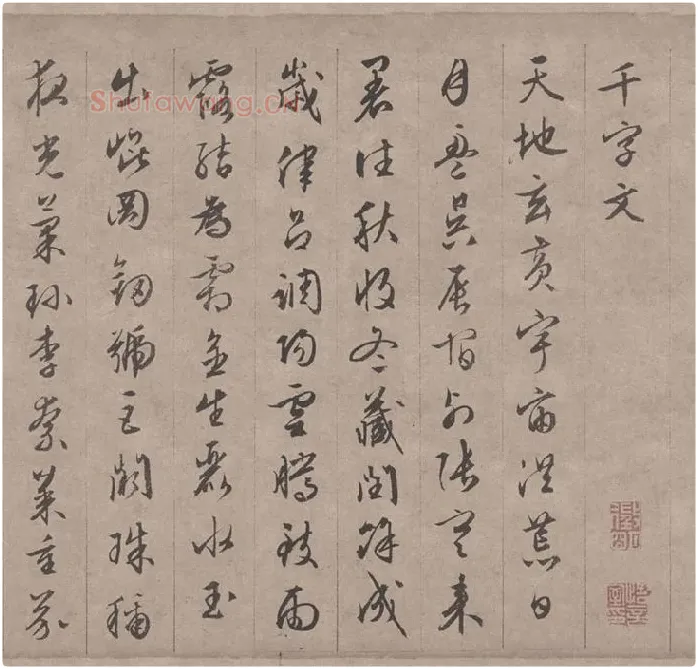 千字文
天地玄黄宇宙洪荒日
月盈昃辰宿列張寒来
暑往秋收冬藏閏餘成
歲律吕調陽雲騰致雨
露結為霜金生麗水玉
出崑岡劒號巨闕珠稱
夜光菓珍李柰菜重芥